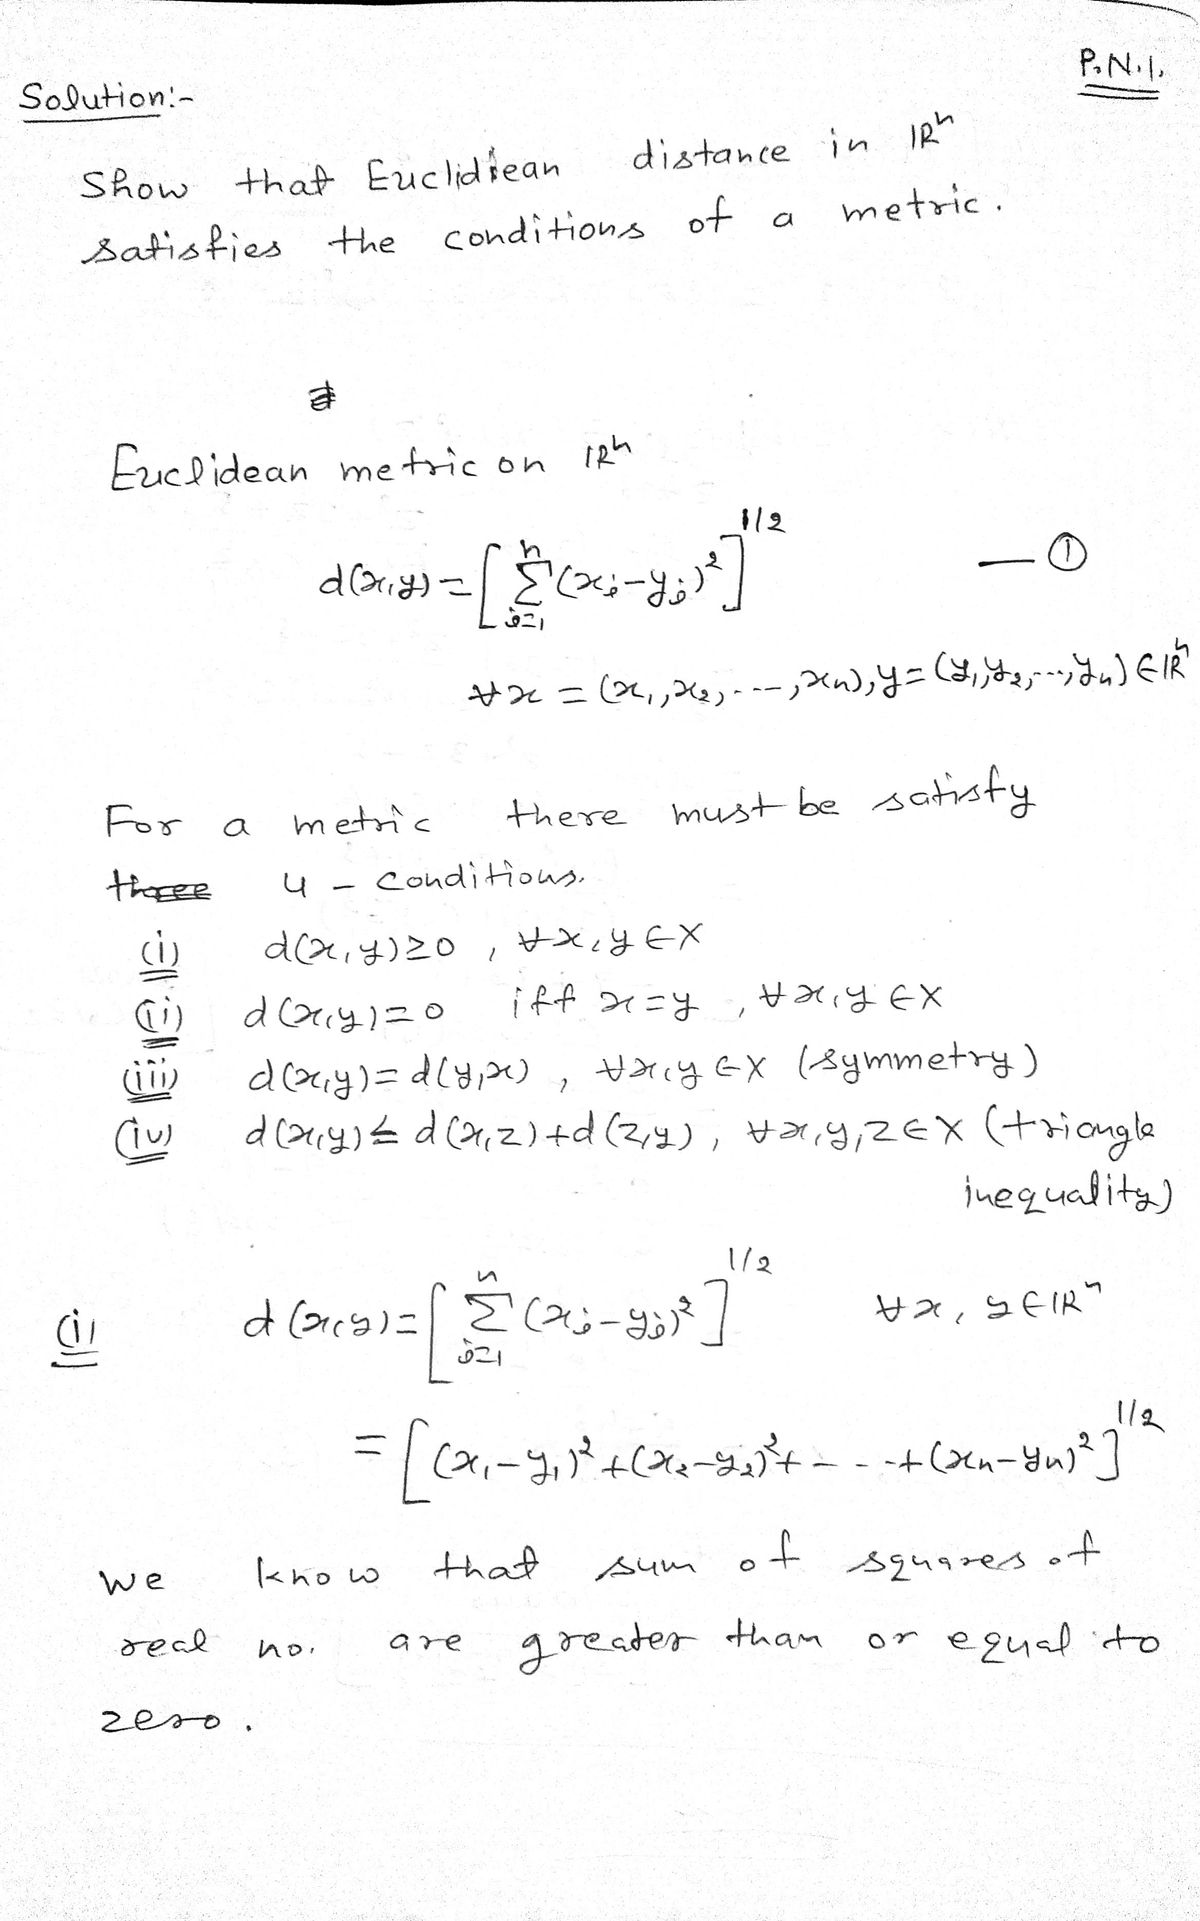 P.N.1.
Solution:-
Show that Euclidiean distance in ℝⁿ
satisfies the conditions of a metric.
Euclidean metric on ℝⁿ
d(x,y) = [ ∑ⁿᵢ₌₁ (xᵢ-yᵢ)² ]^1/2 — ①
∀x = (x₁,x₂,---,xn), y = (y₁,y₂,---,yn) ∈ ℝⁿ
For a metric there must be satisfy
4 - conditions.
(i) d(x,y)≥0 , ∀x,y ∈ X
(ii) d(x,y)=0 iff x=y , ∀x,y ∈ X
(iii) d(x,y)=d(y,x) , ∀x,y ∈ X (symmetry)
(iv) d(x,y)≤ d(x,z)+d(z,y), ∀x,y,z ∈ X (triangle
inequality)
(i) d(x,y)=[ ∑ⁿᵢ₌₁ (xᵢ-yᵢ)² ]^1/2 ∀x, y ∈ ℝⁿ
= [ (x₁-y₁)²+(x₂-y₂)²+ - - -+(xn-yn)² ]^1/2
we know that sum of squares of
real no. are greater than or equal to
zero.